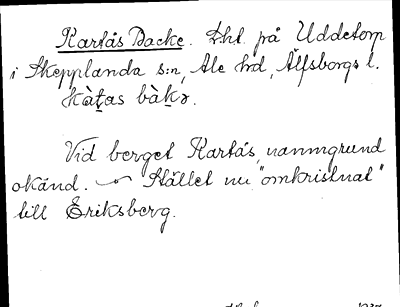 Kartås Backe. Lht. på Uddetorp
i Skepplanda s:n, Ale hd, Älfsborgs l.
Vid berget Kartås, namngrund
okänd. Stället nu "omkristnat"
till Eriksberg.